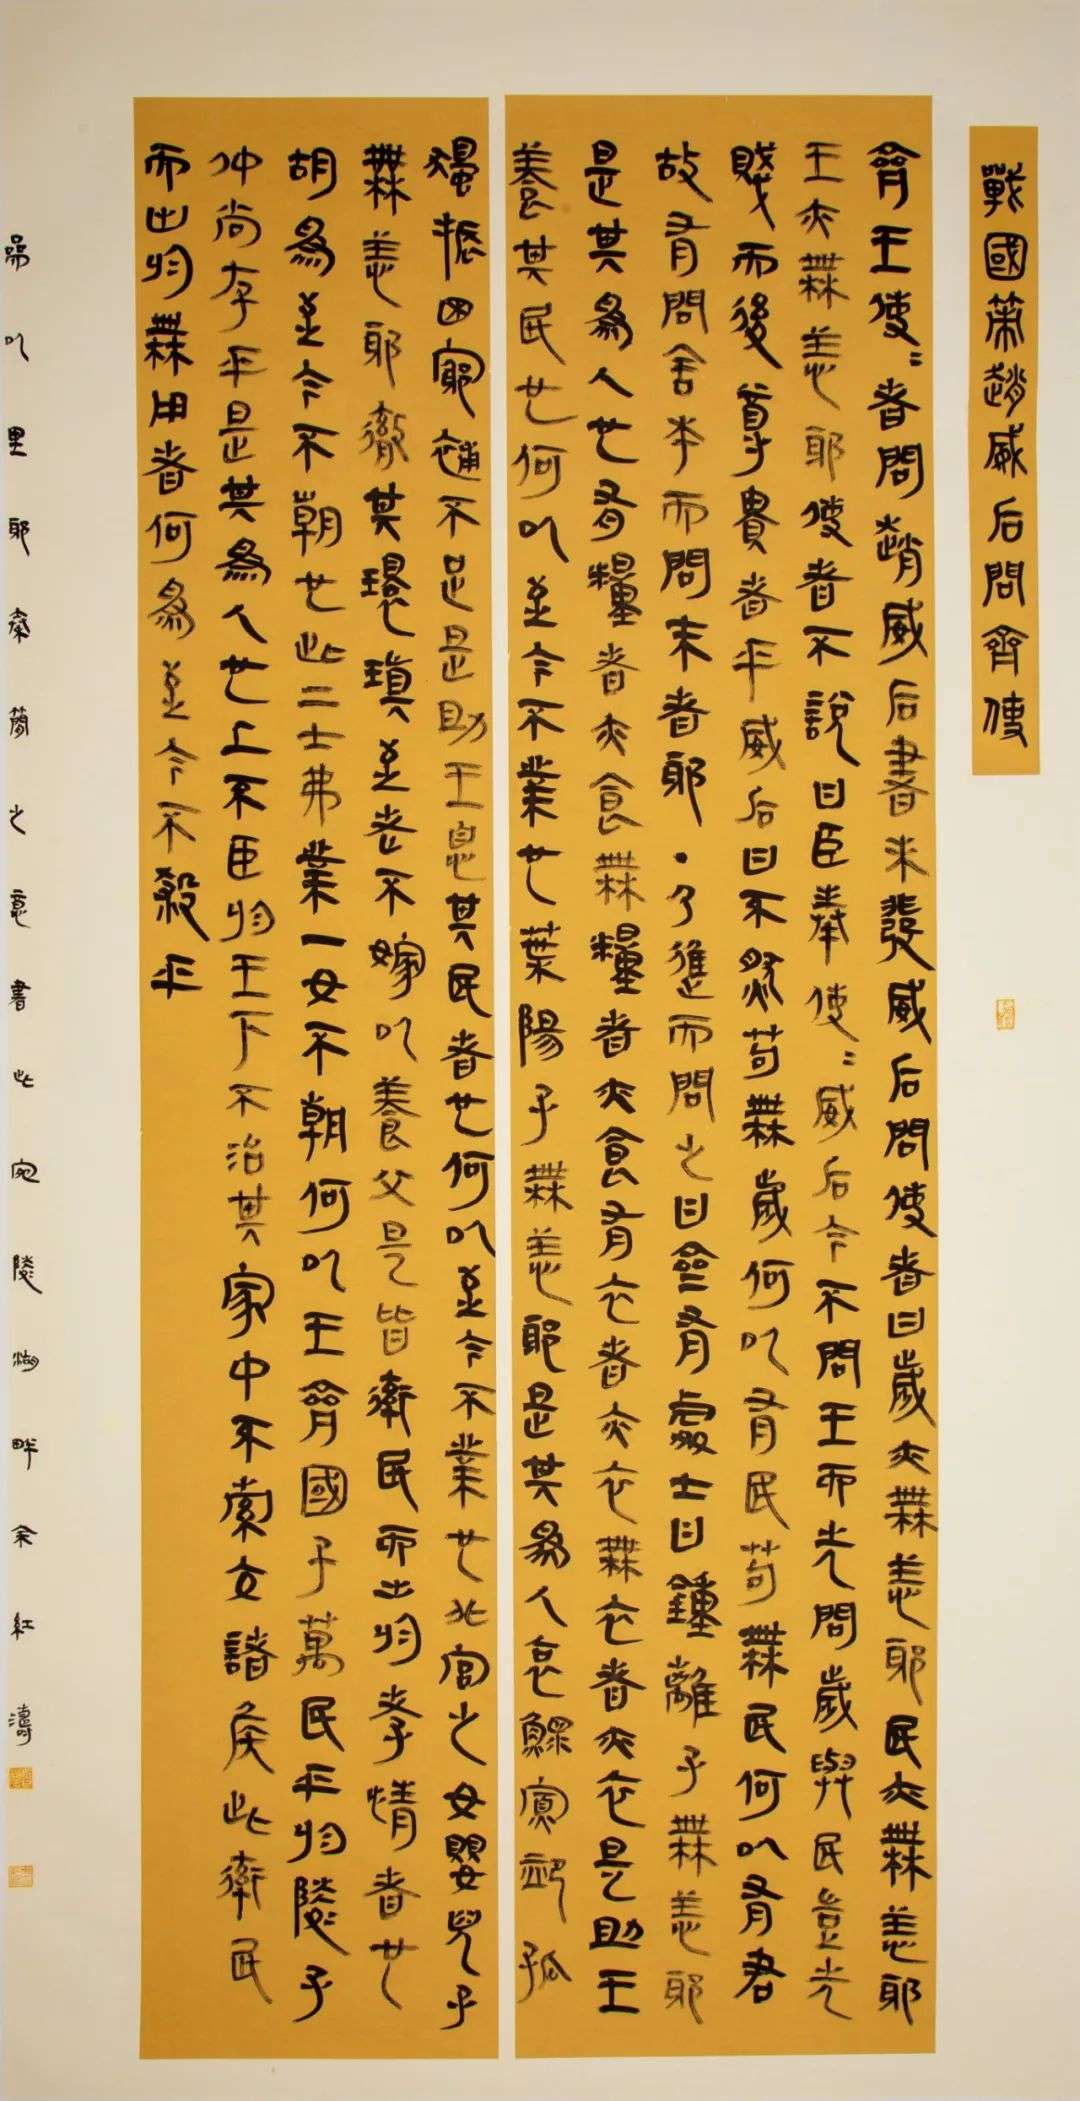 戰國策趙威后問齊使
齊王使=者問趙威后書未發威后問使者曰歲亦無恙耶民亦無恙耶
王亦無恙耶使者不說曰臣奉使=威后今不問王而先問歲與民豈先
賤而後尊貴者乎威后曰不然苟無歲何以有民苟無民何以有君
故有問舍本而問末者耶·乃進而問之曰齊有處士曰鍾離子無恙耶
是其為人也有糧者亦食無糧者亦食有衣者亦衣無衣者亦衣是助王
養其民也何以至今不業也葉陽子無恙耶是其為人哀鰥寡卹孤
獨振困窮補不足是助王息其民者也何以至今不業也北宮之女嬰兒子
無恙耶徹其環瑱至老不嫁以養父母是皆率民而出於孝情者也
胡為至今不朝也此二士弗業一女不朝何以王齊國子萬民乎於陵子
仲尚存乎是其為人也上不臣於王下不治其家中不索交諸侯此率民
而出於無用者何為至今不殺乎
以里耶秦簡之意書此宛陵湖畔余紅濤